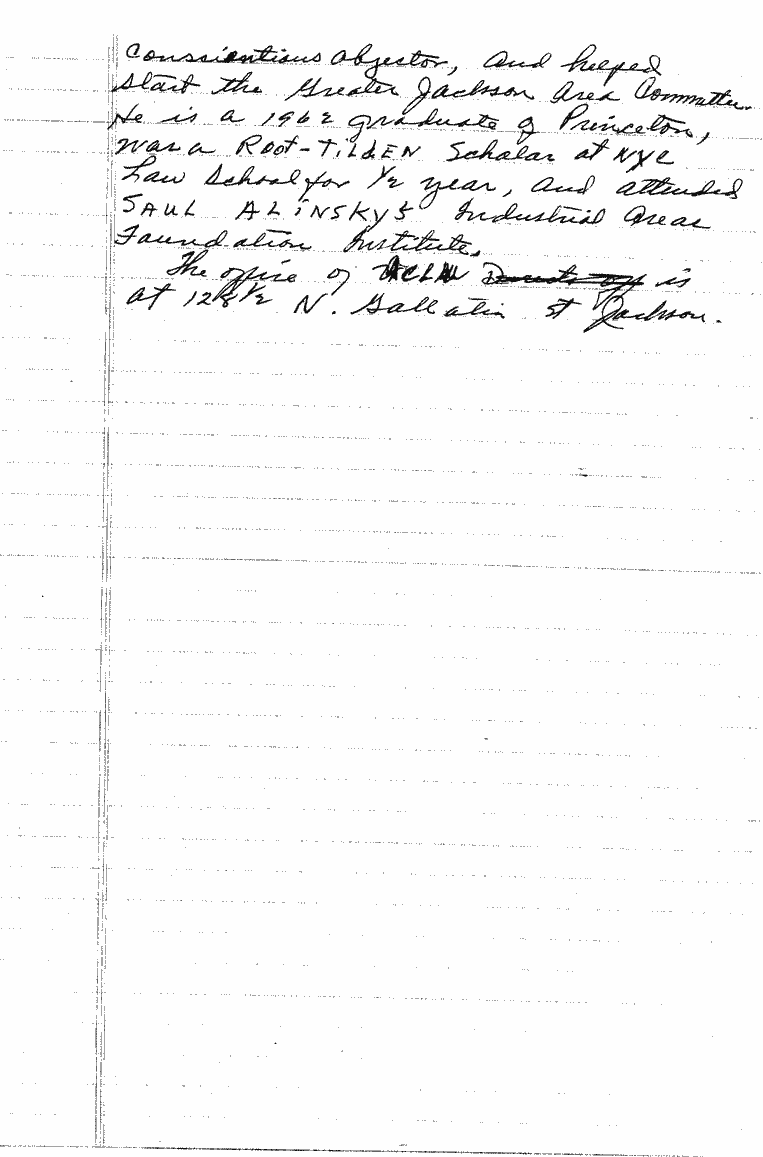 conscientious objector, and helped
start the Greater Jackson Area Committee.
He is a 1962 graduate of Princeton,
was a Root-TiLdEN Scholar at NYC
Law School for 1/2 year, and attended
SAUL ALiNSKyS Industrial Areas
Foundation Institute.
The office of ACLU is
at 128 1/2 N. Gallatin St Jackson.